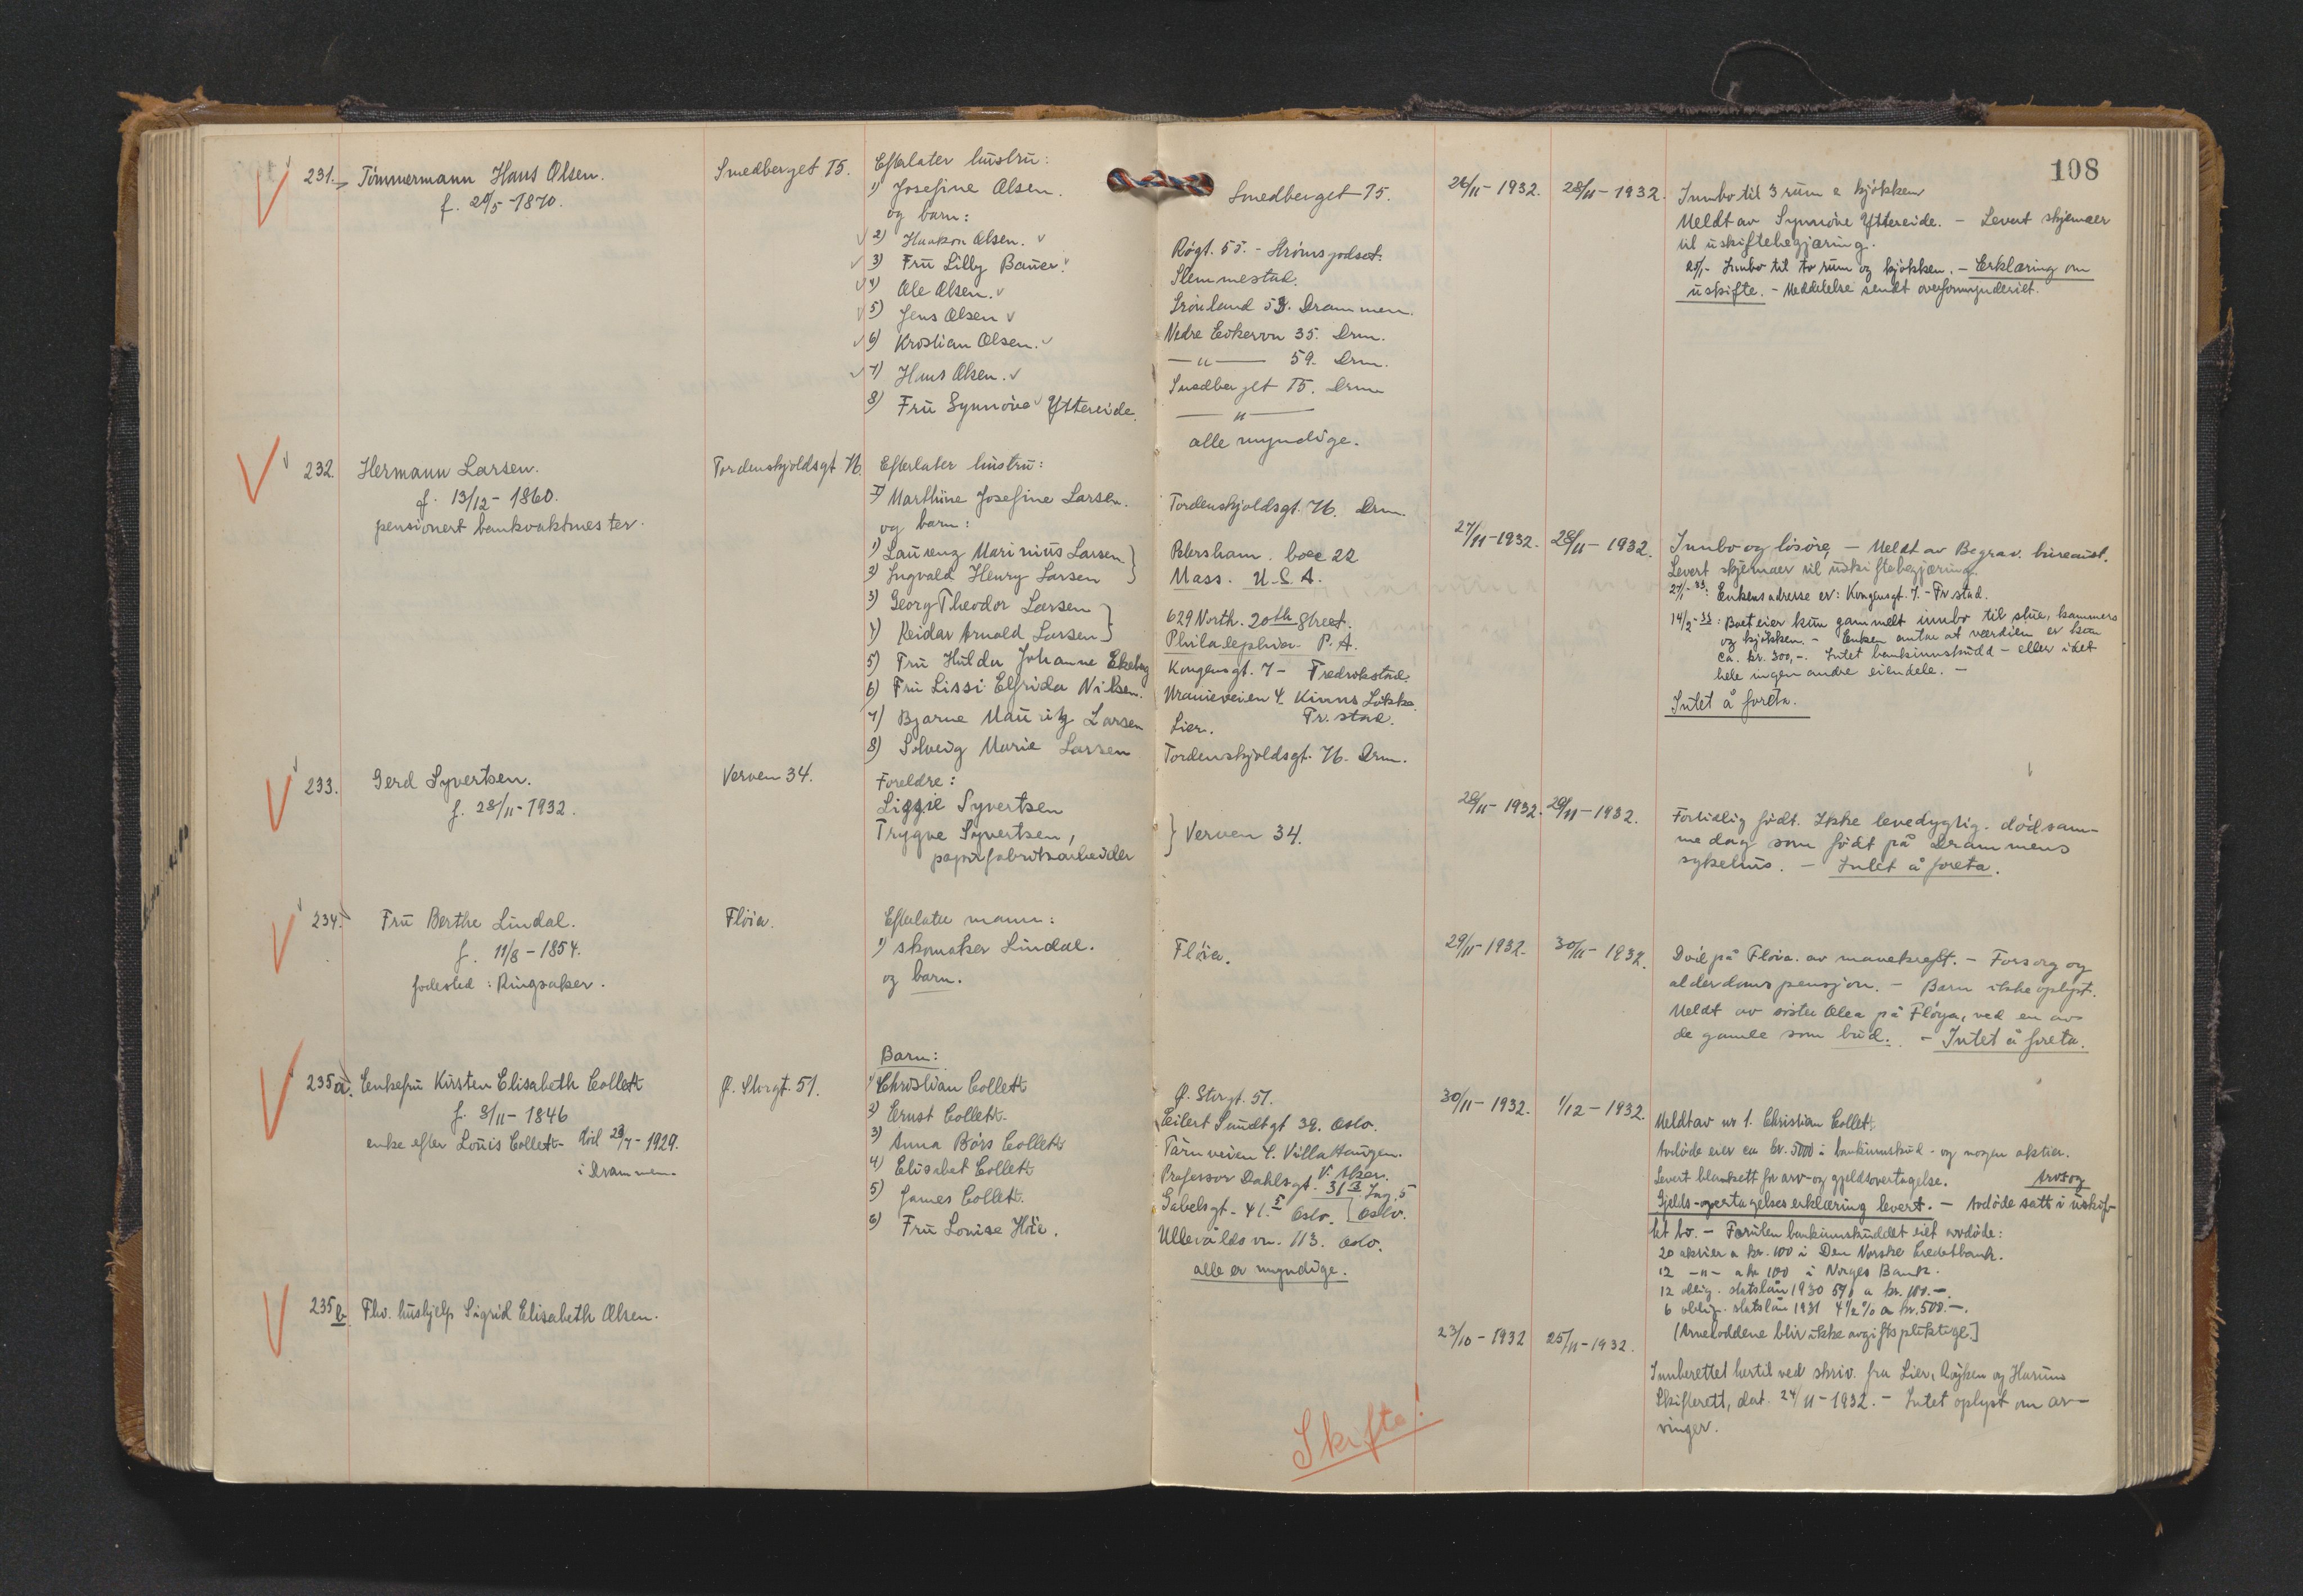 108
231. Tømmermann Hans Olsen.
f. 20/5-1870.
Smedberget 75.
Efterlater hustru:
1) Josefine Olsen.
og barn:
2) Haakon Olsen.
3) Fru Lilly Bauer.
4) Ole Olsen.
5) Jens Olsen
6) Kristian Olsen.
7) Hans Olsen.
8) Fru Synnöve Yttereide.
Smedberget 75.
Rögt. 55. - Strömsgodset.
Slemmestad.
Grönland 53. Drammen.
Nedre Eikervn 35. Drm.
— " — 59. Drm.
Smedberget 75. Drm
— " —
alle myndige.
26/11-1932.
28/11-1932.
Innbo til 3 rum a kjökken
Meldt av Synnöve Yttereide. - Levert skjemaer
til uskiftebegjæring.
Innbo til to rum og kjökken. - Erklæring om
uskifte. - Meddelelse sendt overformynderiet.
232. Hermann Larsen.
f. 13/12-1860.
pensionert bankvaktmester.
Tordenskjoldsgt 76.
Efterlater hustru:
Marthine Josefine Larsen.
og barn:
1) Laurenz Marinius Larsen
2) Ingvald Henry Larsen
3) Georg Theodor Larsen
4) Reidar Arnold Larsen
5) Fru Hulda Johanne Ekeberg
6) Fru Lissi Elfrida Nilsen.
7) Bjarne Mauritz Larsen
8) Solveig Marie Larsen
Tordenskjoldsgt. 76. Drm.
Petersham. boxe 22
Mass. U.S.A.
629 North. 20th Street.
Philadelphia P.A.
Kongensgt. 7 - Fredrikstad.
Uranieveien 4. Kinns Lökke.
Fr. stad.
Lier.
Tordenskjoldsgt. 76. Drm.
27/11-1932.
28/11-1932.
Innbo og lösöre, - Meldt av Begrav. bureauet.
Levert skjemaer til uskiftebegjæring.
27/1-33: Enkens adresse er: Kongensgt. 7. - Fr stad.
14/2-33: Boet eier kun gammelt innbo til stue, kammers
og kjökken. - Enken antar at verdien er kun
ca. kr. 300,-. Intet bankinnskudd - eller i det
hele ingen andre eiendele. -
Intet å foreta.
233. Gerd Syvertsen.
f. 28/11-1932.
Verven 34.
Foreldre:
Lizzie Syvertsen
Trygve Syvertsen,
papirfabrikarbeider
Verven 34.
28/11-1932.
29/11-1932.
Fortidlig födt. Ikke levedygtig. död sam-
me dag som födt på Drammens
sykehus. - Intet å foreta.
234. Fru Berthe Lindal.
f. 11/8-1854.
födested: Ringsaker.
Flöia.
Efterlater mann:
1) skomaker Lindal.
og barn.
Flöia.
29/11-1932.
30/11-1932.
Död på Flöia. av mavekreft. - Forsorg og
alderdomspensjon. - Barn ikke oplyst.
Meldt av söster Olea på Flöya, ved en av
de gamle som bud. - Intet å foreta.
235a. Enkefru Kirsten Elisabeth Collett
f. 3/11-1846
enke efter Louis Collett - död 23/7-1929.
i Drammen.
Ø. Storgt. 51.
Barn:
1) Christian Collett
2) Ernst Collett.
3) Anna Börs Collett
4) Elisabet Collett
5) James Collett.
6) Fru Louise Höie.
Ø. Storgt. 51.
Eilert Sundtgt 39. Oslo.
Tårnveien 4. Villa Haugen.
V. Aker.
Professor Dahlsgt. 31 III Ing. 5
Oslo.
Gabelsgt. 41. 5 Oslo.
Ullevålds vn. 113. Oslo.
alle er myndige.
30/11-1932.
1/12-1932.
Meldt av nr 1. Christian Collett.
Avdöde eier ca kr. 5000 i bankinnskud - og nogen aktier.
Levert blankett for arv- og gjeldsovertagelse. Arvs og
Gjelds-overtagelseserklæring levert. - Avdöde satt i uskif-
tet bo. - Foruten bankinnskuddet eiet avdöde:
20 aktier a kr. 100 i Den Norske Creditbank.
12 -"- a kr 100 i Norges Bank.
12 oblig. statslån 1930 5% a kr. 100.-.
6 oblig. statslån 1931 4 1/2 % a kr. 500.-.
(Arveloddene blir ikke avgiftspliktige)
235b. Fhv. hushjelp Sigrid Elisabeth Olsen.
23/10-1932
25/11-1932.
Innberettet hertil ved skriv. fra Lier, Röyken og Hurums
Skifterett, dat. 24/11-1932. - Intet oplyst om ar-
vinger.
Skifte!